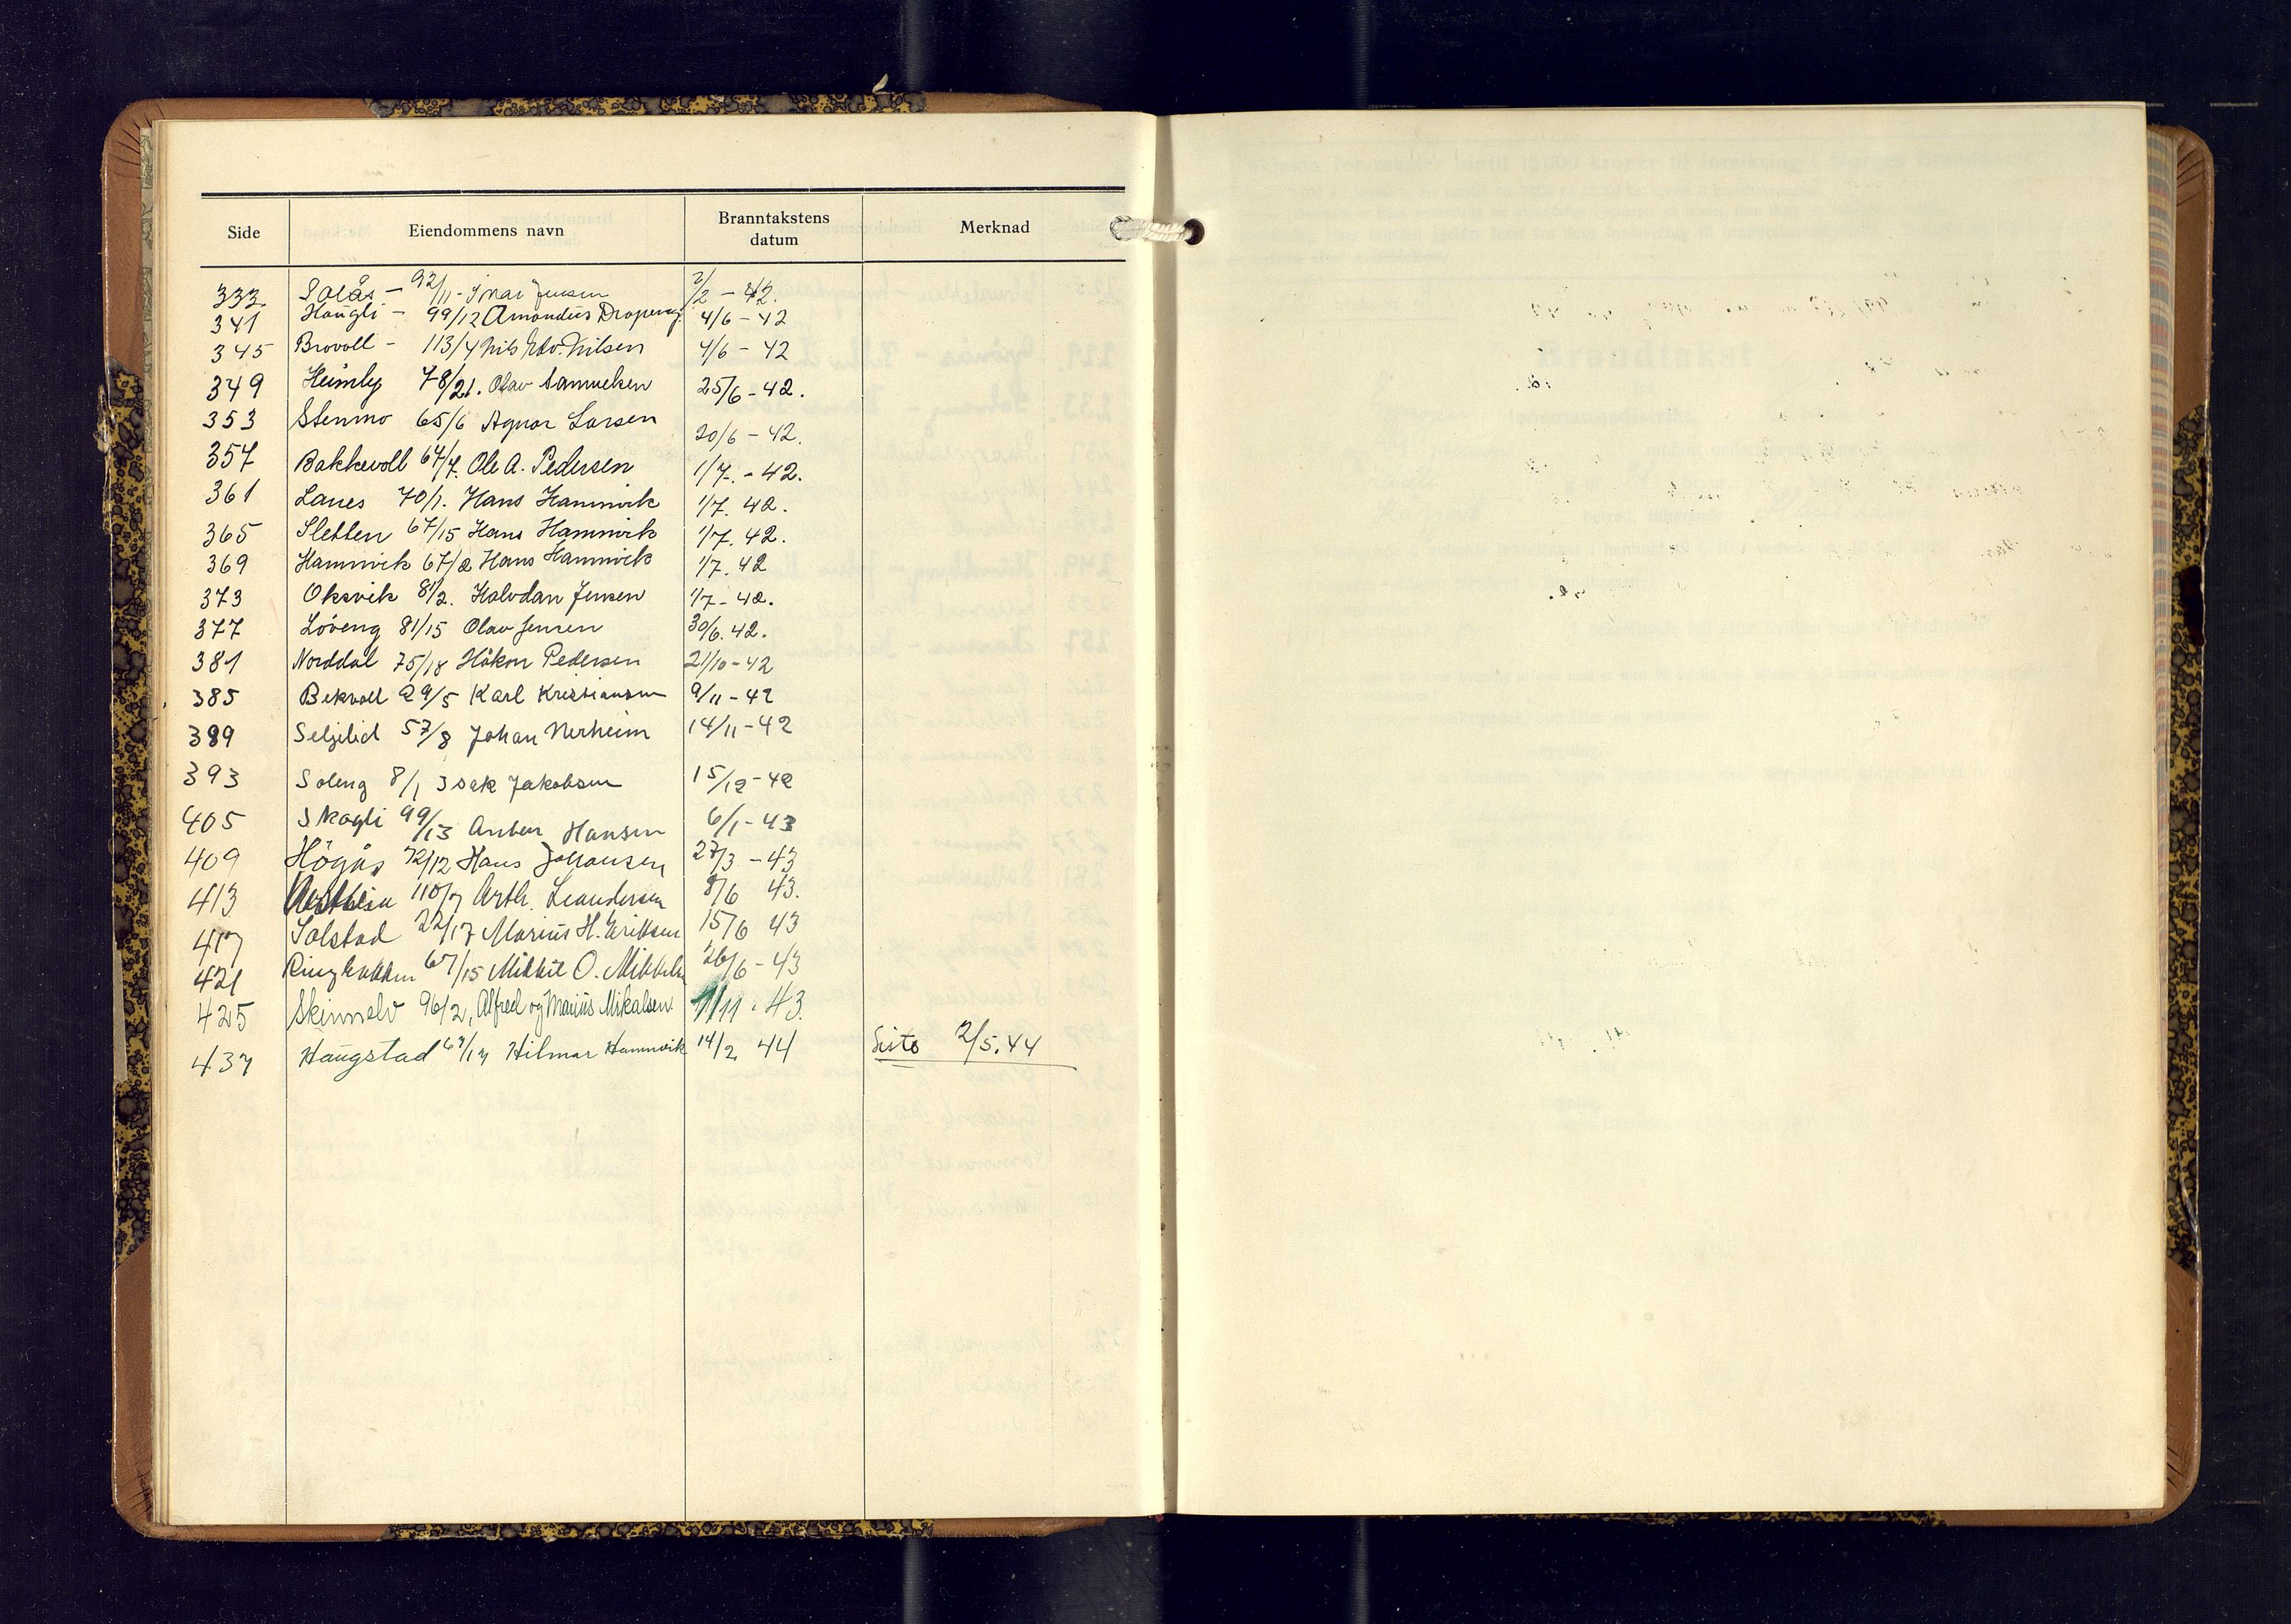 Side Eiendommens navn Branntakstens datum Merknad
333. Solås - 92/11 - Ymar Jensen 2/2 - 42.
341 Haugli - 99/12 Amandus 4/6 - 42
345 Brovoll - 113/4 Nils Edv. Nilsen 4/6 - 42
349 Heimly 78/21. Olav Samuelsen 25/6 - 42.
353 Stenmo 65/6 Agnar Larsen 20/6 - 42.
357 Bakkevoll 67/7. Ole A. Pedersen 1/7. - 42.
361 Lanes 70/1. Hans Hamnvik 1/7. 42.
365 Sletten 67/15 Hans Hamnvik 1/7. 42.
369 Hamnvik 67/2 Hans Hamnvik 1/7. 42
373 Oksvik 81/2. Halvdan Jensen 1/7 - 42.
377 Löveng 81/15 Olav Jensen 30/6. 42.
381 Norddal 75/18 Håkon Pedersen 21/10 - 42
385 Bekvoll 29/5 Karl Kristiansen 9/11 - 42
389 Seljelid 57/8 Johan Nerheim 14/11 - 42
393 Soleng 8/1 Isak Jakobsen 15/12 - 42
405 Skogli 99/13 Anton Hansen 6/1 - 43
409 Högås 72/12 Hans Johansen 27/3 - 43
413 110/7 Arth. Leandersen 8/6 43.
417 Solstad 22/17 Marius H. Eriksen 15/6 43
421 67/15 Mikkel O. 26/6 - 43
425 Skinnelv 96/2, Alfred og Marius Mikalsen 1/11 . 43.
437 Haugstad 67/17 Hilmar Hamnvik 14/2 44 Siste 2/5. 44